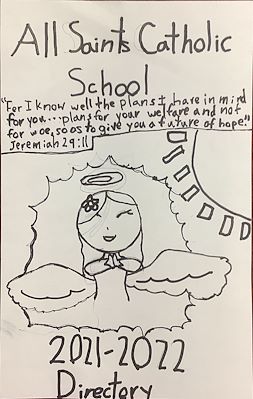 All Saints Catholic
School
"For I know well the plans I have in mind
for you... plans for your welfare and not
for woe, so as to give you a future of hope."
Jeremiah 29:11
2021-2022
Directory